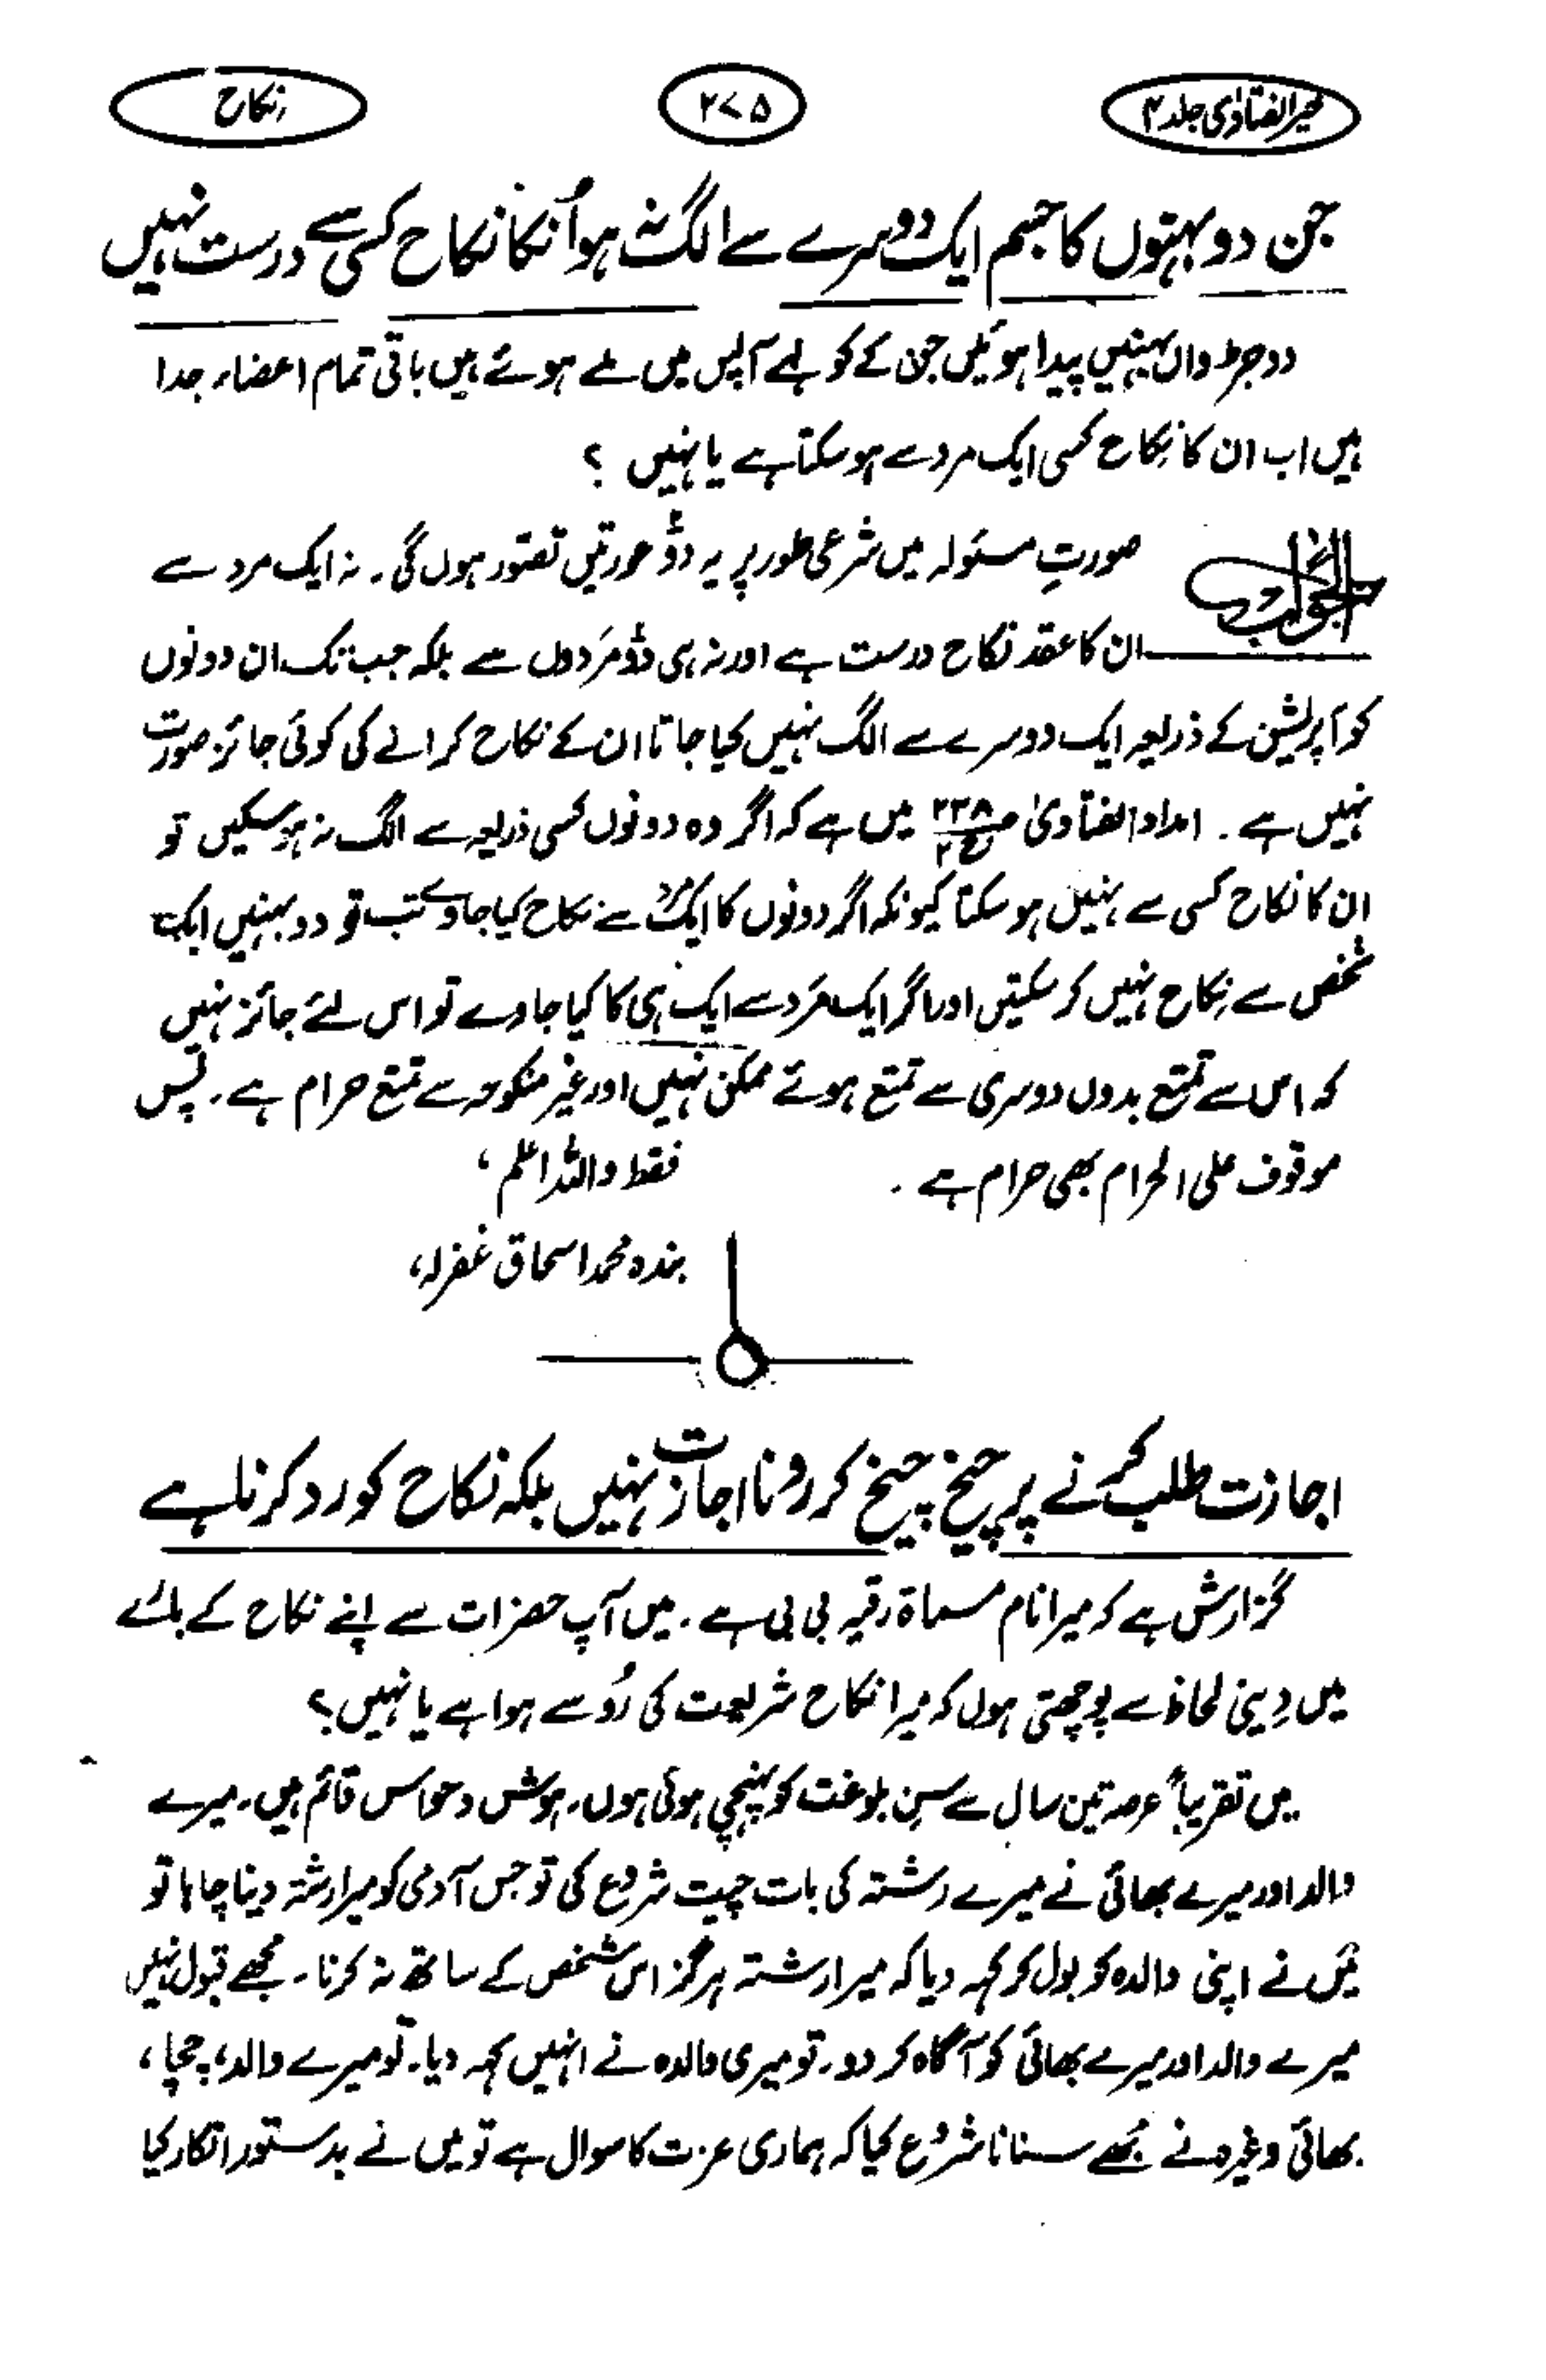 خیر الفتاویٰ جلد ۴
۲۷۵
نکاح
جن دو بہنوں کا جسم ایک دوسرے سے الگ نہ ہو اُنکا نکاح کسی سے درست نہیں
دو جڑواں بہنیں پیدا ہوئیں جن کے کولہے آپس میں ملے ہوئے ہیں باقی تمام اعضاء جدا
ہیں اب ان کا نکاح کسی ایک مرد سے ہو سکتا ہے یا نہیں ؟
الجواب
صورتِ مسئولہ میں شرعی طور پر یہ دو عورتیں تصور ہوں گی۔ نہ ایک مرد سے
ان کا عقد نکاح درست ہے اور نہ ہی دو مَردوں سے بلکہ جب تک ان دونوں
کو آپریشن کے ذریعہ ایک دوسرے سے الگ نہیں کیا جاتا ان کے نکاح کرانے کی کوئی جائز صورت
نہیں ہے۔ امداد الفتاویٰ ص ۲۳۸ ج ۲ میں ہے کہ اگر وہ دونوں کسی ذریعہ سے الگ نہ ہو سکیں تو
ان کا نکاح کسی سے نہیں ہو سکتا کیونکہ اگر دونوں کا ایک مرد سے نکاح کیا جاوے تب تو دو بہنیں ایک
شخص سے نکاح نہیں کر سکتیں اور اگر ایک مَرد سے ایک ہی کا کیا جاوے تو اس لئے جائز نہیں
کہ اس سے تمتع بدوں دوسری سے تمتع ہوئے ممکن نہیں اور غیر منکوحہ سے تمتع حرام ہے۔ پس
موقوف علی الحرام بھی حرام ہے ۔ فقط واللہ اعلم ،
بندہ محمد اسحاق غفرلہ،
اجازت طلب کرنے پر چیخ چیخ کر رونا اجازت نہیں بلکہ نکاح کو رد کرنا ہے
گزارش ہے کہ میرا نام مسماۃ رقیہ بی بی ہے ۔ میں آپ حضرات سے اپنے نکاح کے بارے
میں دِینی لحاظ سے پوچھتی ہوں کہ میرا نکاح شریعت کی رُو سے ہوا ہے یا نہیں ؟
میں تقریباً عرصہ تین سال سے سنِ بلوغت کو پہنچی ہوئی ہوں، ہوش وحواس قائم ہیں، میرے
والد اور میرے بھائی نے میرے رشتہ کی بات چیت شروع کی تو جس آدمی کو میرا رشتہ دینا چاہا تو
میں نے اپنی والدہ کو بول کر کہہ دیا کہ میرا رشتہ ہرگز اس شخص کے ساتھ نہ کرنا ۔ مجھے قبول نہیں
میرے والد اور میرے بھائی کو آگاہ کر دو۔ تو میری والدہ نے انہیں کہہ دیا۔ تو میرے والد، چچا،
بھائی وغیرہ نے مجھے سنانا شروع کیا کہ ہماری عزت کا سوال ہے تو میں نے بدستور انکار کیا